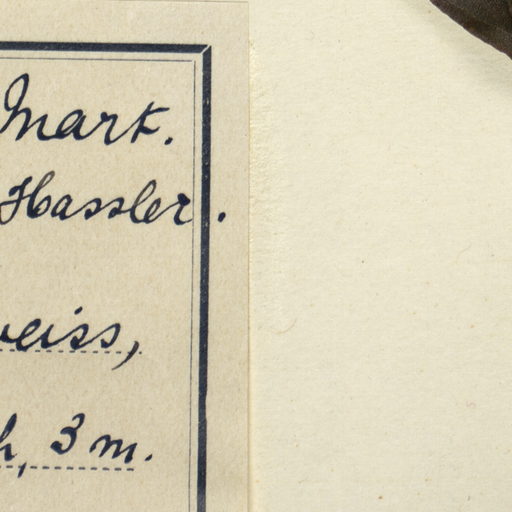 Mark.
Hassler.
weiss,
h, 3 m.